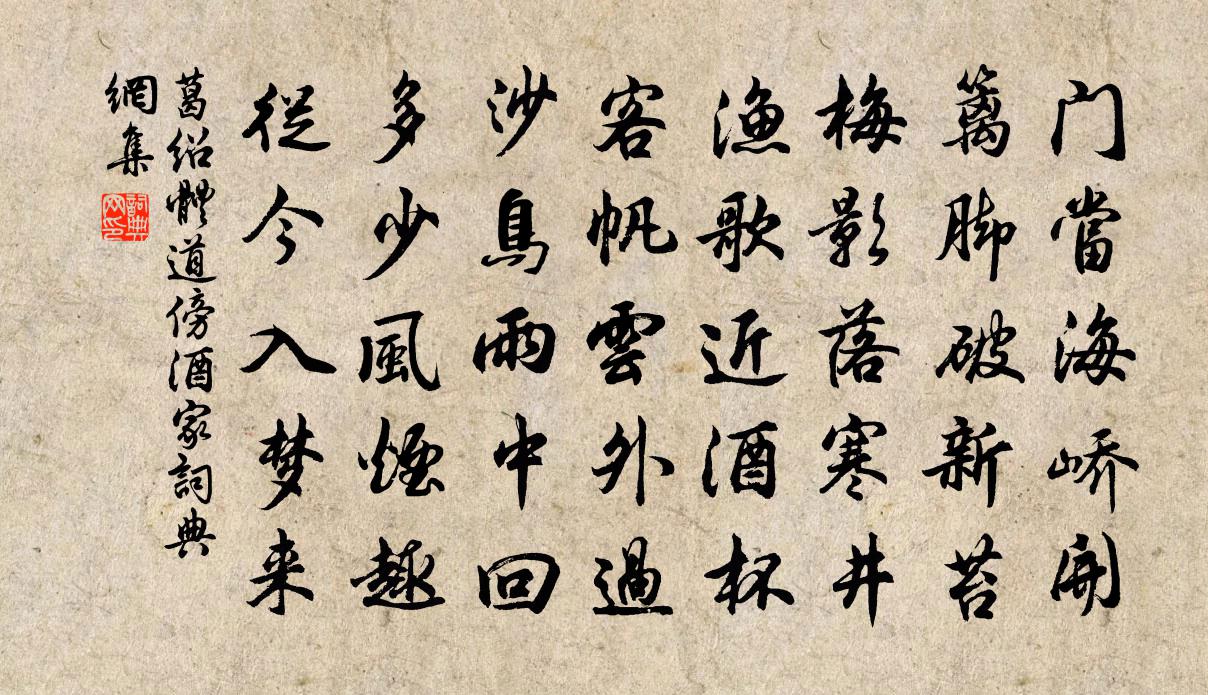 门當海峤開
篱脚破新苔
梅影落寒井
渔歌近酒杯
客帆雲外過
沙鳥雨中回
多少風煙趣
從今入梦来
葛绍體道傍酒家詞典
網集
詞典網印